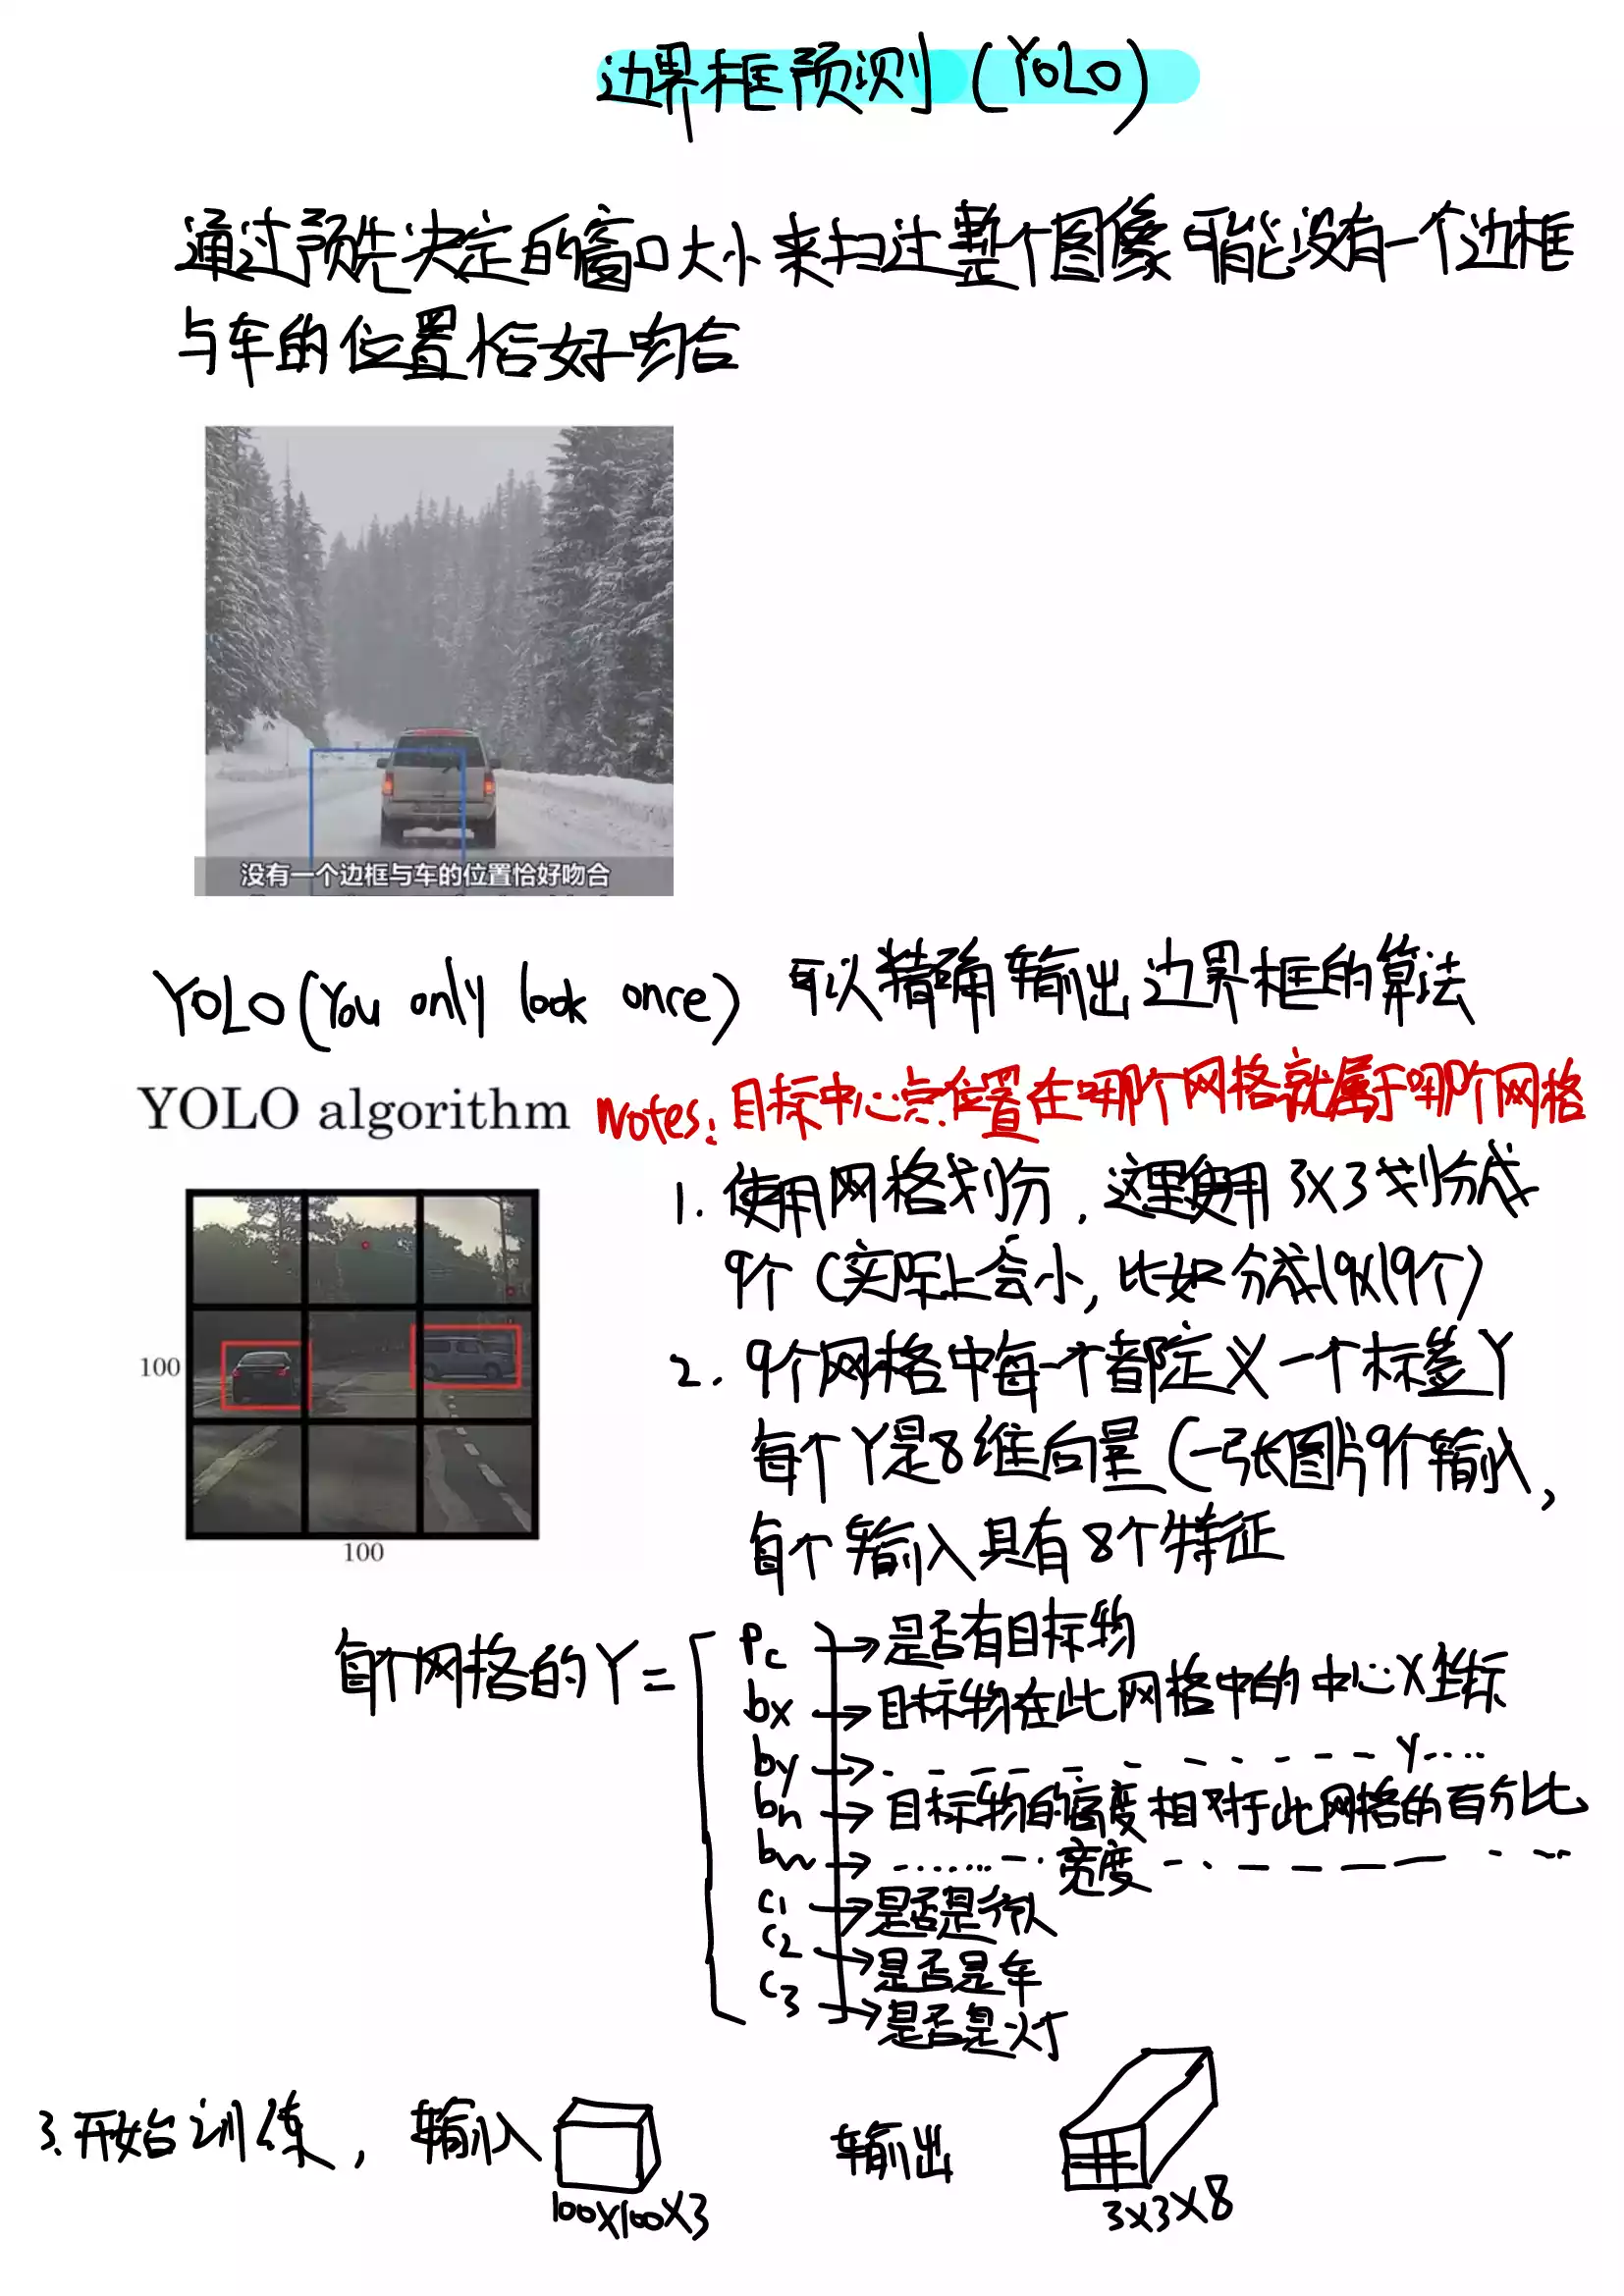 边界框预测 (YOLO)
通过预先决定的窗口大小来扫过整个图像可能没有一个边框
与车的位置恰好吻合
没有一个边框与车的位置恰好吻合
YOLO (You only look once) 可以精确输出边界框的算法
YOLO algorithm
Notes: 目标中心点位置在哪个网格就属于哪个网格
1. 使用网格划分, 这里使用3X3划分成
9个 (实际上会小, 比如分成19X19个)
100
2. 9个网格中每一个都定义一个标签Y
每个Y是8维向量 (一张图片9个输入,
每个输入具有8个特征
100
每个网格的Y=
Pc → 是否有目标物
bx → 目标物在此网格中的中心X坐标
by → Y
bh → 目标物的高度相对于此网格的百分比
bw → 宽度
C1 → 是否是行人
C2 → 是否是车
C3 → 是否是灯
3. 开始训练, 输入 输出
100X100X3 3X3X8